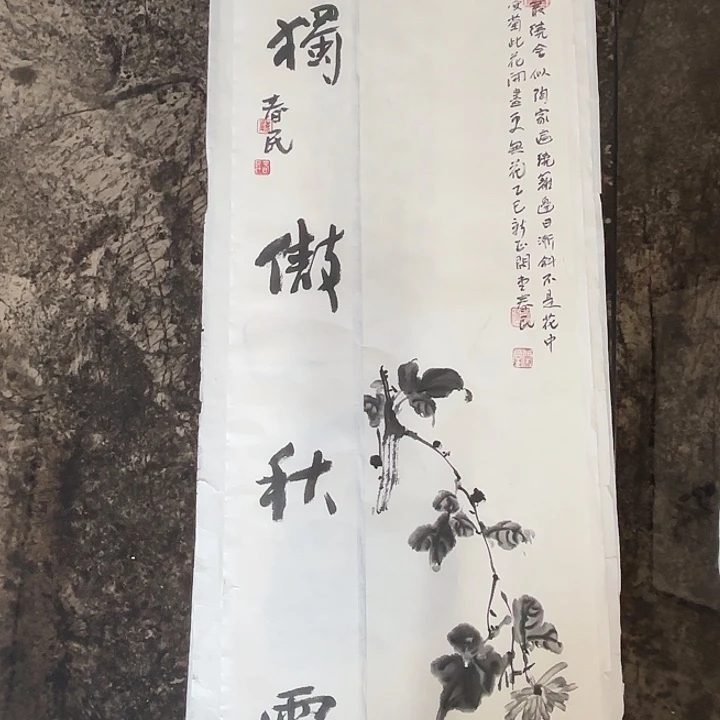 繞舍似陶家遍繞籬邊日漸斜不是花中
愛菊此花開盡更無花乙巳新正閑堂春民
獨傲秋
春民